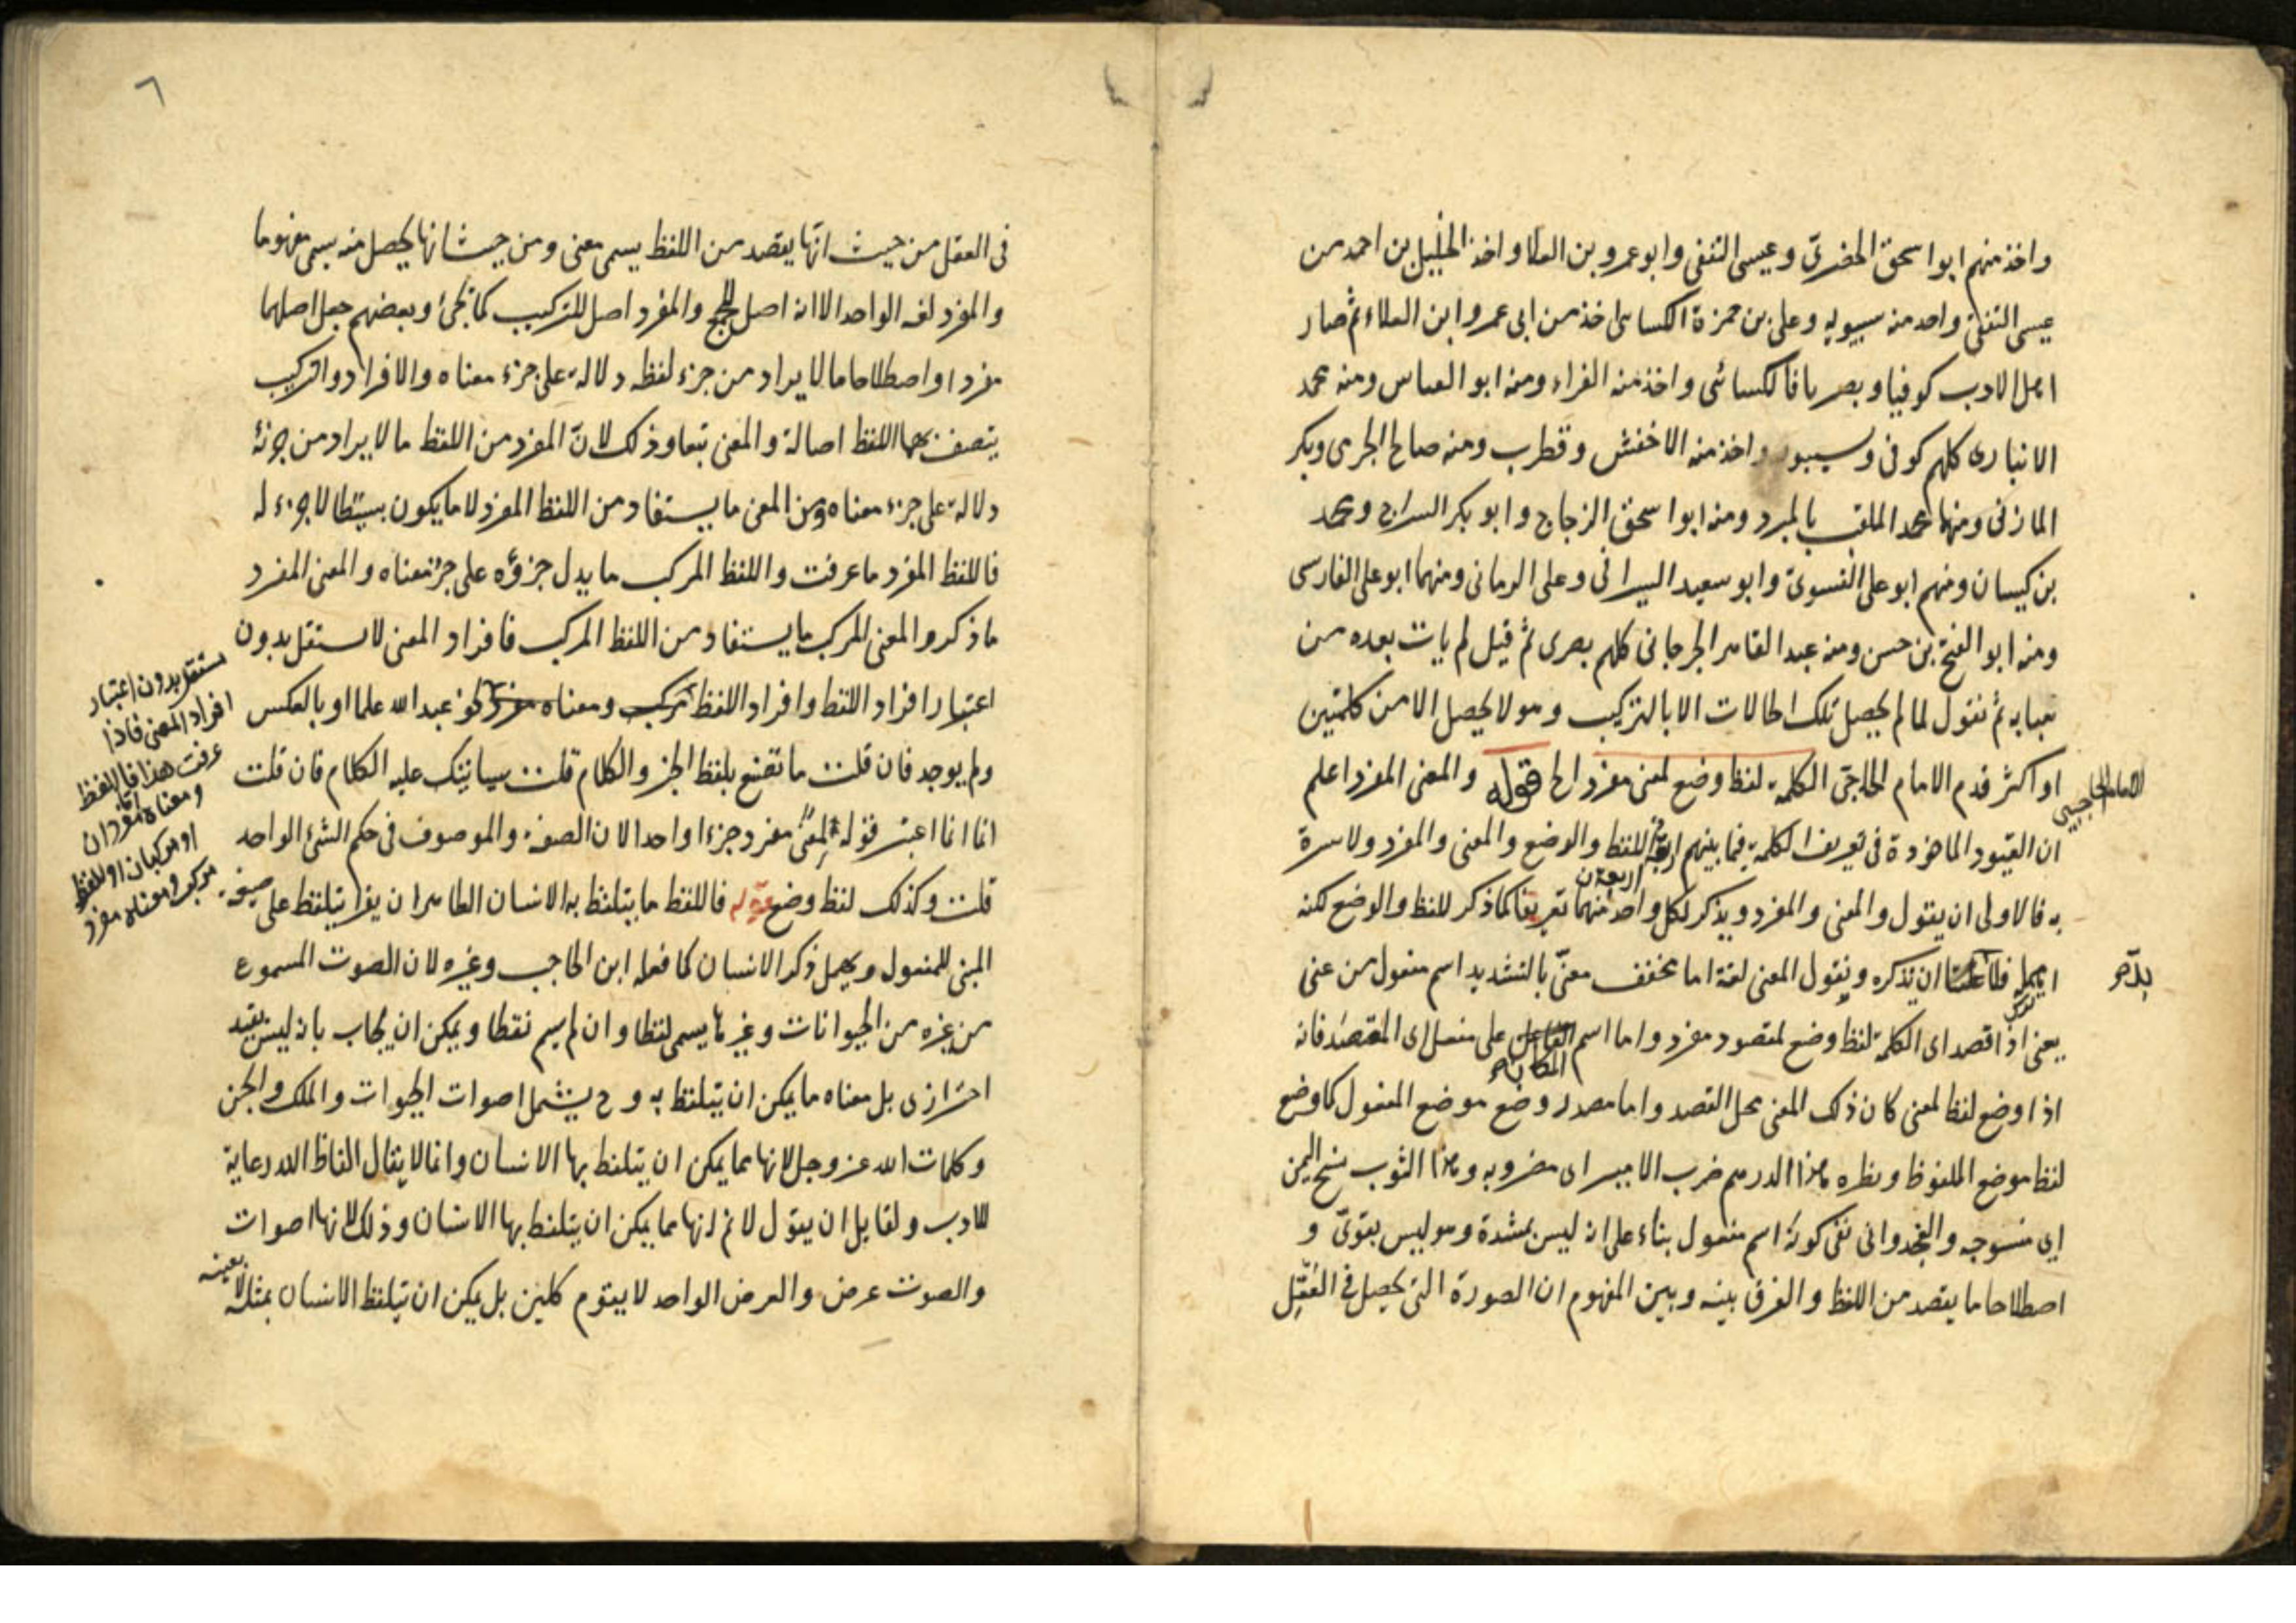 واخذ منهم ابو اسحق الحضرمى وعيسى الثقفى وابو عمرو بن العلا واخذ الخليل بن احمد من
عيسى الثقفى واحد منه سيبويه وعلى بن حمزة الكسائى اخذ من ابى عمرو ابن العلاء ثم صار
اهل الادب كوفيا وبصريا فالكسائى واخذ منه الفراء ومنه ابو العباس ومنه محمد
الانبارى كلهم كوفى وسيبويه واخذ منه الاخفش وقطرب ومنه صالح الجرمى وبكر
المازنى ومنهما محمد الملقب بالمبرد ومنه ابو اسحق الزجاج وابو بكر السراج ومحمد
بن كيسان ومنهم ابو على الفسوى وابو سعيد السيرافى وعلى الرمانى ومنهما ابو على الفارسى
ومنه ابو الفتح بن حسن ومنه عبد القاهر الجرجانى كلهم بصرى ثم قيل لم يات بعده من
يعبا به ثم نقول لما لم يحصل تلك الحالات الا بالتركيب وهو لا يحصل الا من كلمتين
او اكثر قدم الامام الحاجبى الكلمة لفظ وضع لمعنى مفرد الخ قوله والمعنى المفرد اعلم
الامام الحاجبى
ان القيود الماخوذة فى تعريف الكلمة فيما بينهم اربعة اللفظ والوضع والمعنى والمفرد ولا سرة
به فالاولى ان يقول والمعنى والمفرد ويذكر لكل واحد منهما تعريفا كما ذكر للفظ والوضع لكنه
اهمل فلا علينا ان نذكره ونقول المعنى لغة اما مخفف معنىّ بالتشديد اسم مفعول من عنى
يعنى اذا قصد اى الكلمة لفظ وضع لمقصود مفرد واما اسم المكان على مفعل اى المقصد فانه
اذا وضع لفظ لمعنى كان ذلك المعنى محل القصد واما مصدر وضع موضع المفعول كما وضع
لفظ موضع الملفوظ ونظره هذا الدرهم ضرب الامير اى مضروبه وهذا الثوب نسج اليمن
اى منسوجه والفجدوانى نفى كونه اسم مفعول بناء على انه ليس بمشدة وهو ليس بقوى و
اصطلاحا ما يقصد من اللفظ والفرق بينه وبين المفهوم ان الصورة التى يحصل فى العقل
٦
فى العقل من حيث انها يقصد من اللفظ يسمى معنى ومن حيث انها يحصل منه يسمى مفهوما
والمفرد لغة الواحد الا انه اصل للجمع والمفرد اصل للتركيب كما يجئ وبعضهم جعل اصلهما
مفردا واصطلاحا ما لا يراد من جزء لفظه دلالة على جزء معناه والافراد والتركيب
يتصف بهما اللفظ اصالة والمعنى تبعا وذلك لانّ المفرد من اللفظ ما لا يراد من جزئه
دلالة على جزء معناه ومن المعنى ما يستفاد من اللفظ المفرد لا ما يكون بسيطا لا جزء له
فاللفظ المفرد ما عرفت واللفظ المركب ما يدل جزؤه على جزء معناه والمعنى المفرد
ما ذكر والمعنى المركب ما يستفاد من اللفظ المركب فافراد المعنى لا يستقل بدون
اعتبار افراد اللفظ وافراد اللفظ مركب ومعناه مفرد نحو عبد الله علما او بالعكس
مستقل بدون اعتبار
افراد المعنى فاذا
عرفت هذا فاللفظ
ومعناه مفردان
او مركبان او اللفظ
مركب ومعناه مفرد
ولم يوجد فان قلت ما تصنع بلفظ الخبر والكلام قلت سياتيك عليه الكلام فان قلت
انما انما اعتبر قوله لمعنى مفرد جزءا واحدا لان الصفة والموصوف فى حكم الشئ الواحد
قلت وكذلك لفظ وضع قوله فاللفظ ما يتلفظ به الانسان الظاهر ان يقرا يتلفظ على صيغة
المبنى للمفعول ويهمل ذكر الانسان كما فعله ابن الحاجب وغيره لان الصوت المسموع
من غيره من الحيوانات وغيرها يسمى لفظا وان لم يسم نقطا ويمكن ان يجاب بانه ليس بقيد
احترازى بل معناه ما يمكن ان يتلفظ به وح يشمل اصوات الحيوات والملك والجن
وكلمات الله عز وجل لانها مما يمكن ان يتلفظ بها الانسان وانما لا يقال الفاظ الله رعاية
للادب ولقايل ان يقول لا نم انها مما يمكن ان يتلفظ بها الانسان وذلك لانها اصوات
والصوت عرض والعرض الواحد لا يقوم بمحلين بل يمكن ان يتلفظ الانسان بمثله لا بعينه